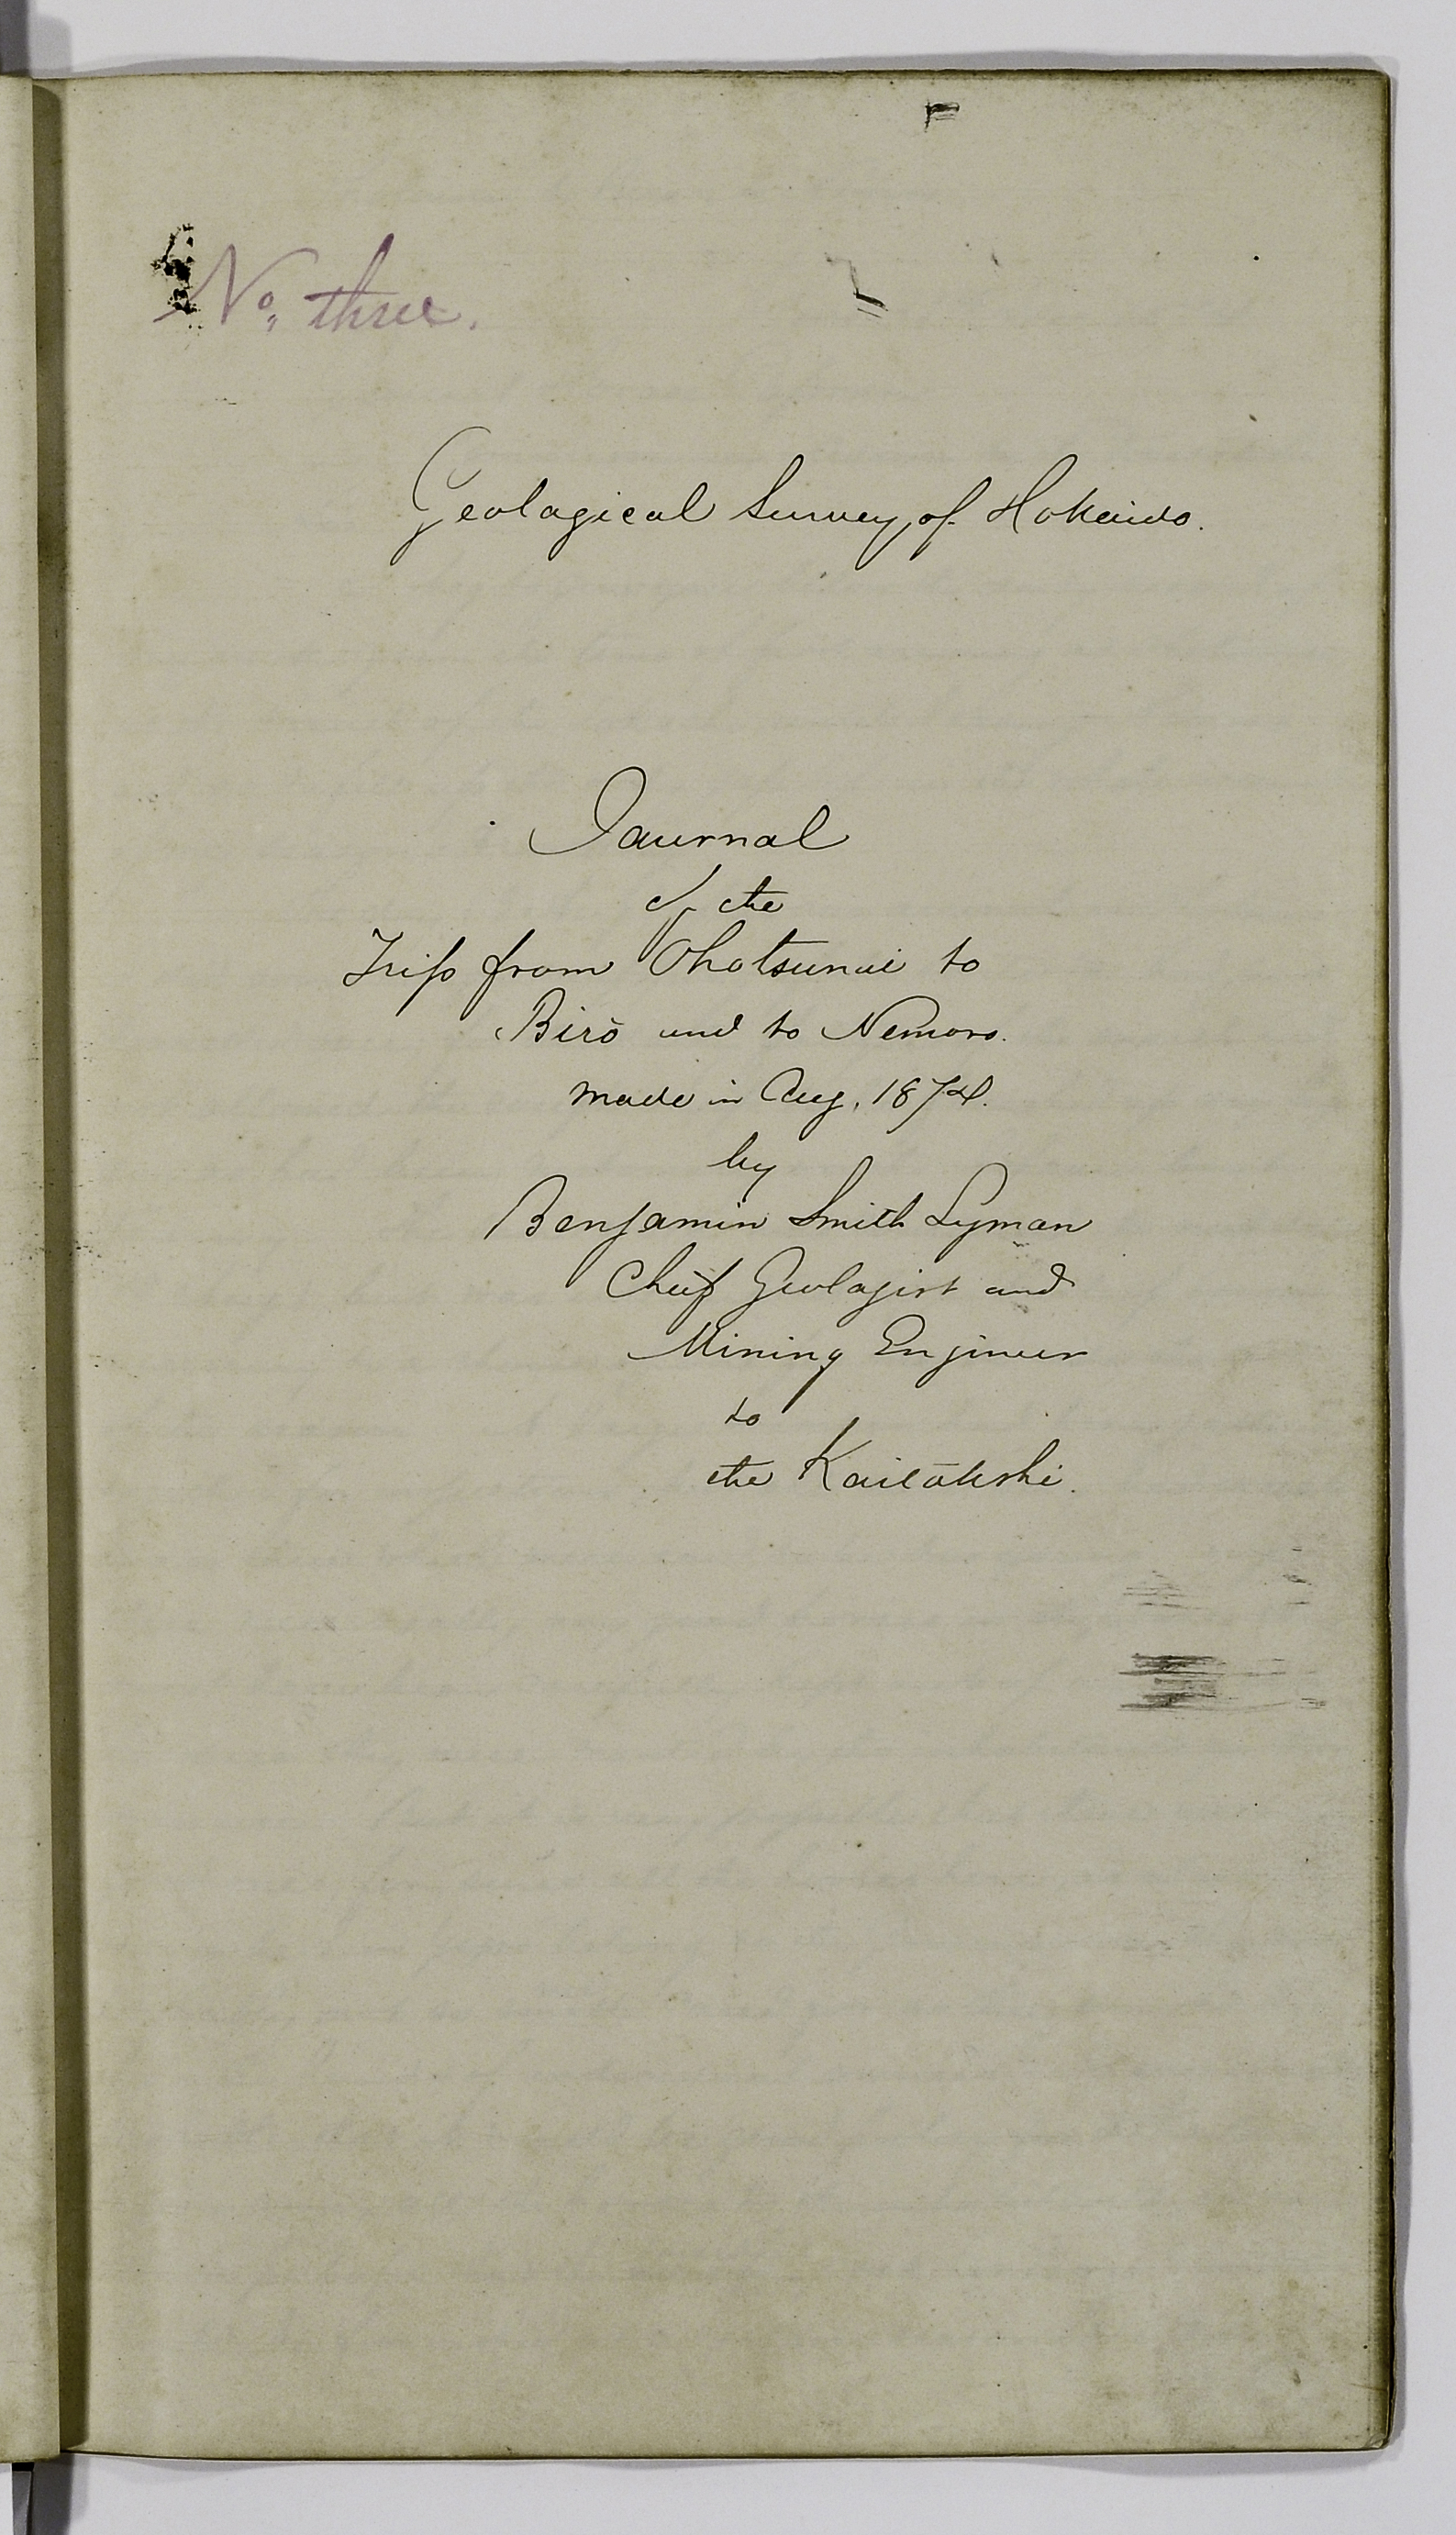 No. three.
Geological Survey of Hokaido.
Journal
of the
Trip from Ohotsunai to
Birō and to Nemoro.
made in Aug. 1874.
by
Benjamin Smith Lyman
Chief Geologist and
Mining Engineer
to
the Kaitakshi.